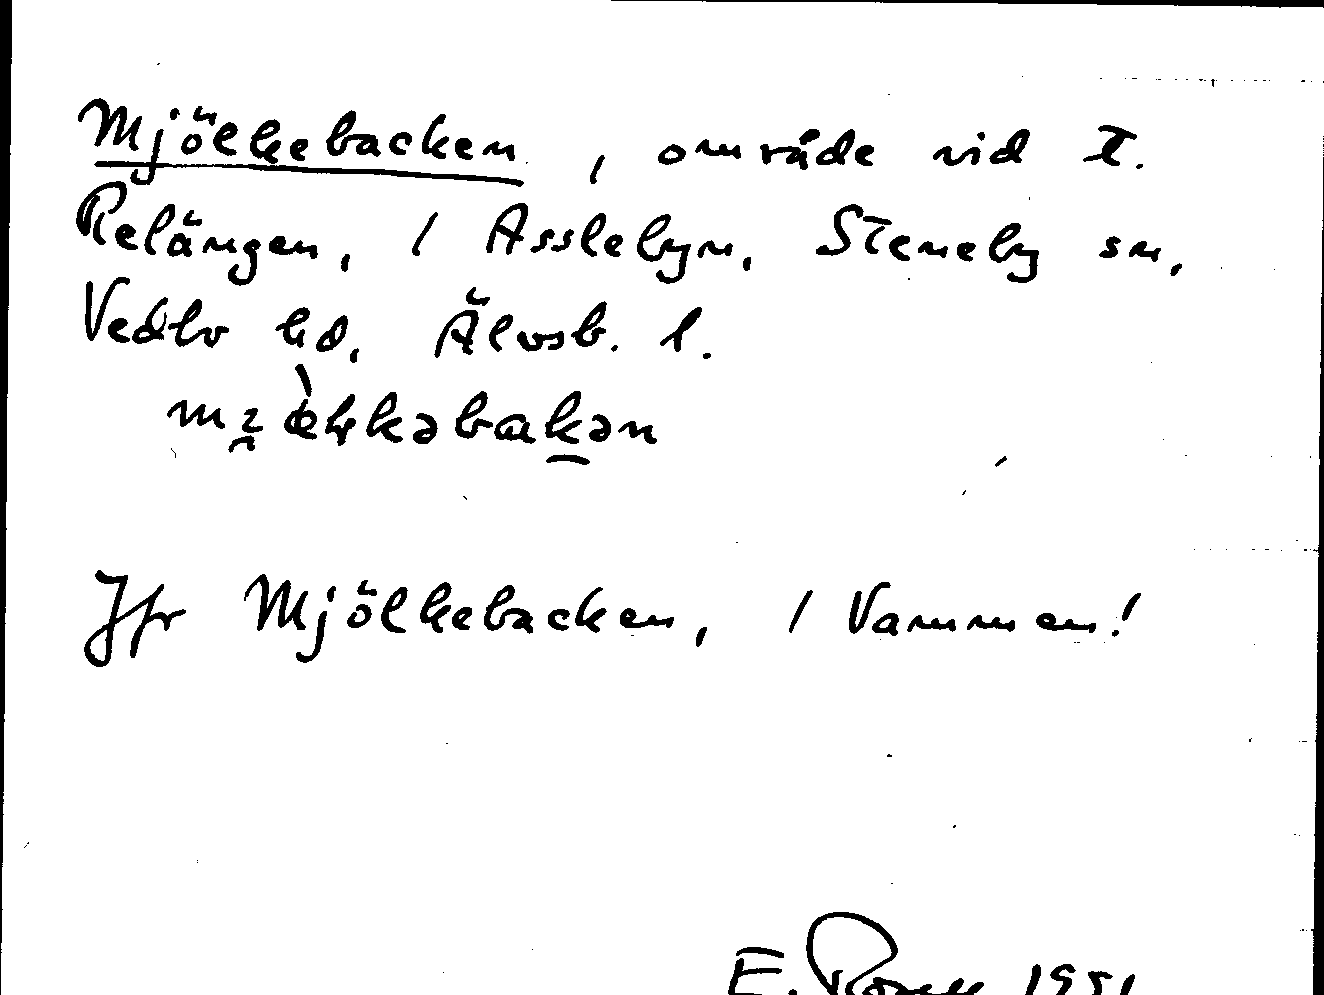 Mjölkebacken, område vid t.
Relängen, / Asslebyn, Steneby sn,
Vedbo hd, Älvsb. l.
Jfr Mjölkebacken, / Vammen!
E. 1951